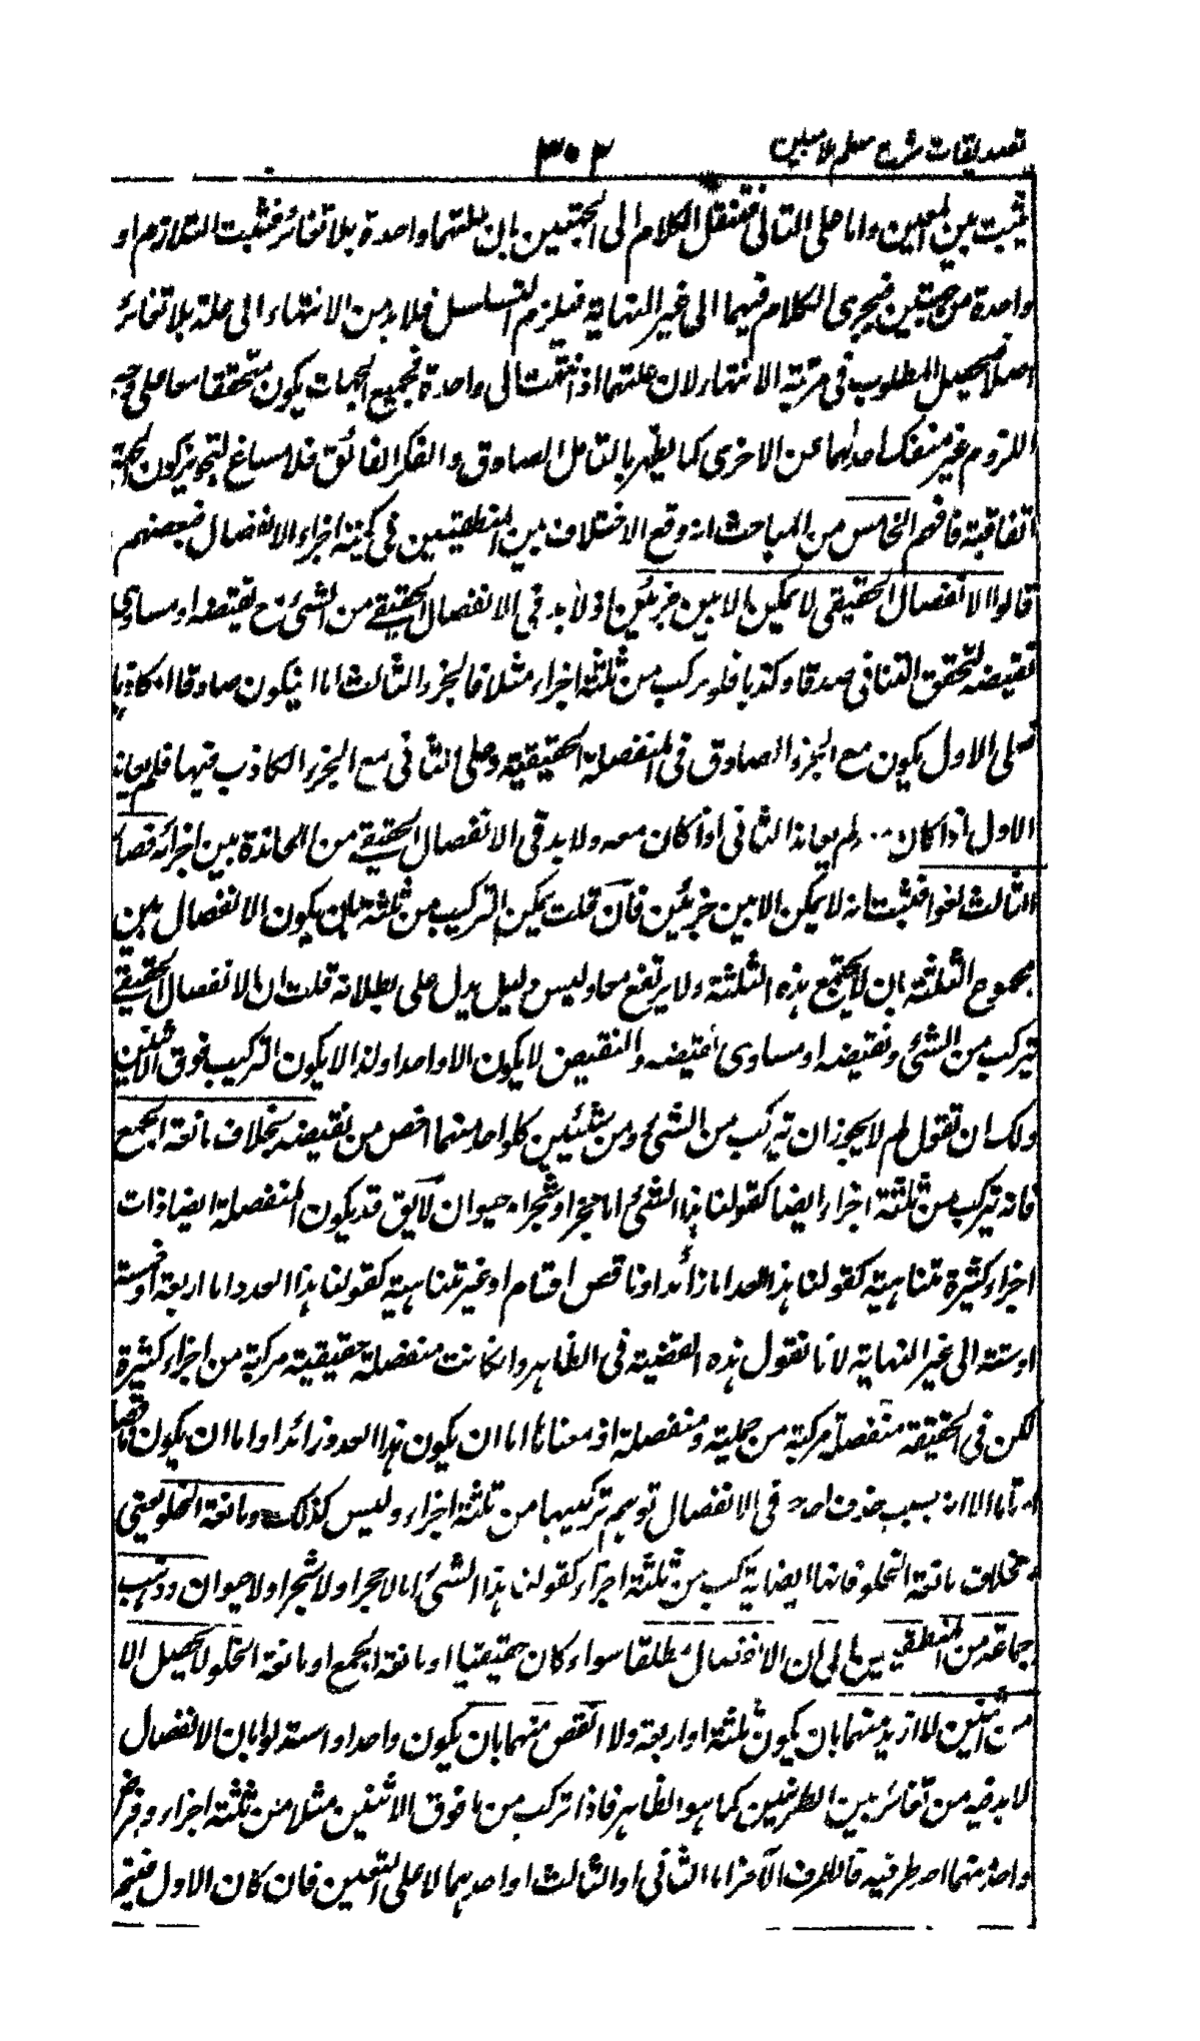 تصديقات شرح سلم لامبين ٣٠٢
يثبت بين المعين واما على الثانى فننقل الكلام الى الجهتين بان علتهما واحدة بلا تغائر فثبت التلازم او
واحدة من جهتين فيجرى الكلام فيهما الى غير النهاية فيلزم التسلسل فلا بد من الانتهاء الى علة بلا تغائر
اصلا فيحصل المطلوب فى مرتبة الانتهاء لان علتهما اذا انتهت الى واحدة بجميع الجهات يكون متحققا معا على وجه
اللزوم غير منفك احدهما عن الاخرى كما يظهر بالتامل الصادق والفكر الفائق فلا مساغ لتجويز كون الجهة
اتفاقية فافهم الخامس من المباحث انه وقع الاختلاف بين المنطقيين فى كمية اجزاء الانفصال فبعضهم
قالوا الانفصال الحقيقى لا يمكن الا بين جزئين اذ لا بد فى الانفصال الحقيقے من الشئ مع نقيضه او مساوى
نقيضه ليتحقق التنافى صدقا وكذبا فلو تركب من ثلثة اجزاء مثلا فالجزء الثالث اما ان يكون صادقا او كاذبا
فعلى الاول يكون مع الجزء الصادق فى المنفصلة الحقيقية وعلى الثانى مع الجزء الكاذب فيها فلم يعاند
الاول اذا كان لم يعاند الثانى اذا كان معه ولا بد فى الانفصال الحقيقے من المعاندة بين اجزائه فصار
الثالث لغوا فثبت انه لا يمكن الا بين جزئين فان قلت يمكن التركيب من ثلثة بان يكون الانفصال بين
مجموع الثلثة بان لا يجتمع هذه الثلثة ولا يرتفع معا وليس دليل يدل على بطلانه قلت ان الانفصال الحقيقے
يتركب من الشئ ونقيضه او مساوى نقيضه والنقيض لا يكون الا واحدا ولذا لا يكون التركيب فوق الاثنين
ولك ان تقول لم لا يجوز ان يتركب من الشئ ومن شيئين كلواحد منهما اخص من نقيضه بخلاف مانعة الجمع
فانه يتركب من ثلثة اجزاء ايضا كقولنا هذا الشئ اما حجر او شجر او حيوان لا يق قد يكون المنفصلة ايضا ذات
اجزاء كثيرة متناهية كقولنا هذا العدد اما زائد او ناقص او تام او غير متناهية كقولنا هذا العدد اما اربعة او خمسة
او ستة الى غير النهاية لانا نقول هذه القضية فى الظاهر وان كانت منفصلة حقيقية مركبة من اجزاء كثيرة
لكن فى الحقيقة منفصلة مركبة من حملية ومنفصلة اذ معناها اما ان يكون هذا العدد زائدا او اما ان يكون ناقصا
او تاما الا انه بسبب حذف احد فى الانفصال توهم تركيبها من ثلثة اجزاء وليس كذلك ومانعة الخلو يعنى
بخلاف مانعة الخلو فانها ايضا يتركب من ثلثة اجزاء كقولنا هذا الشئ اما لا حجر او لا شجر او لا حيوان وذهب
جماعة من المنطقيين الى ان الانفصال مطلقا سواء كان حقيقيا او مانعة الجمع او مانعة الخلو لا يحصل الا
من اثنين لا ازيد منهما بان يكون ثلثة او اربعة ولا انقص منهما بان يكون واحدا واستدلوا بان الانفصال
لا بد فيه من تغائر بين الطرفين كما هو الظاهر فاذا تركب من ما فوق الاثنين مثلا من ثلثة اجزاء وفرض
واحد منهما احد طرفيه فالطرف الآخر اما الثانى او الثالث او احدهما لا على التعيين فان كان الاول فيتم